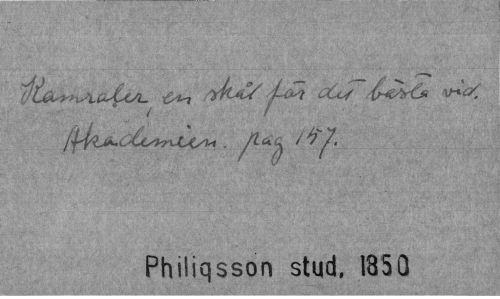 Kamrater, en skål för det bästa vid.
Akademien. pag 157.
Philiqsson stud, 1850